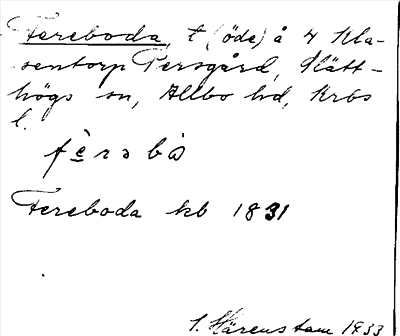 Fereboda, t (öde) å 4 Kla-
sentorp Persgård, Slätt-
högs sn, Allbo hd, Krbs
l.
fèrəbo
Fereboda kb 1831
S. Härenstam 1933